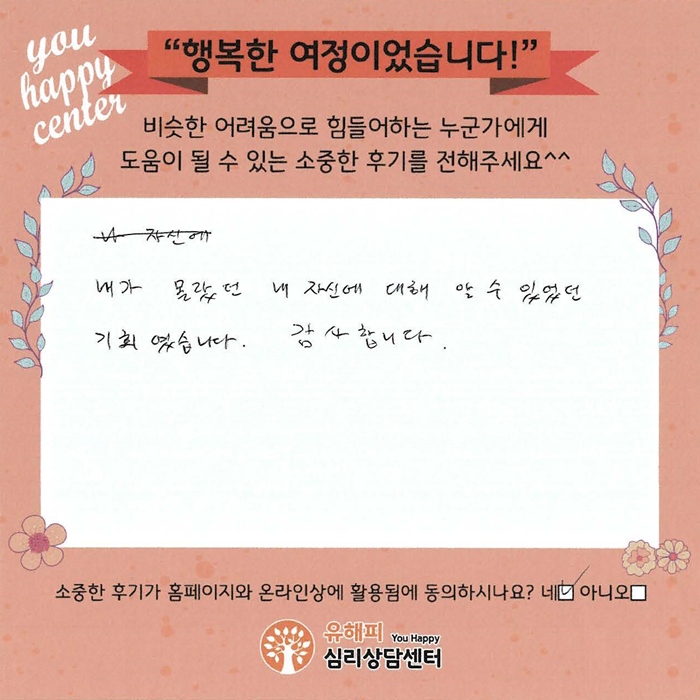 you
happy
center
“행복한 여정이었습니다!”
비슷한 어려움으로 힘들어하는 누군가에게
도움이 될 수 있는 소중한 후기를 전해주세요^^
나 자신에
내가 몰랐던 내 자신에 대해 알 수 있었던
기회였습니다. 감사합니다.
소중한 후기가 홈페이지와 온라인상에 활용됨에 동의하시나요? 네☑ 아니오□
유해피 You Happy
심리상담센터